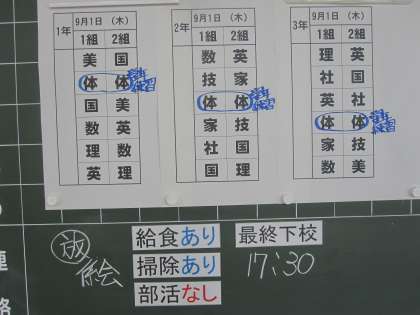 1年 9月1日 (木)
1組 2組
美 国
体 体
国 美
数 英
理 数
英 理
2年 9月1日 (木)
1組 2組
数 英
技 家
体 体
家 技
社 国
国 理
3年 9月1日 (木)
1組 2組
理 英
社 国
英 社
体 体
家 技
数 美
放
絵
給食あり
掃除あり
部活なし
最終下校
17:30